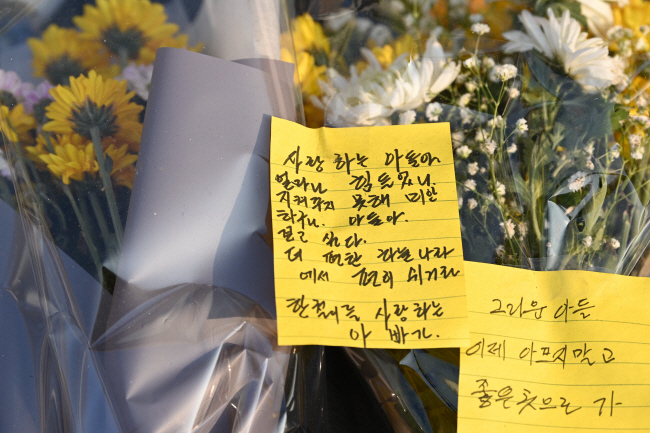 사랑 하는 아들아
얼마나 힘들었니.
지켜주지 못해 미안
하구나. 아들아.
보고 싶다.
더 편한 하늘나라
에서 편히 쉬거라
사랑하는
아 빠가.
그리운 아들
이제 아프지말고
좋은곳으로 가